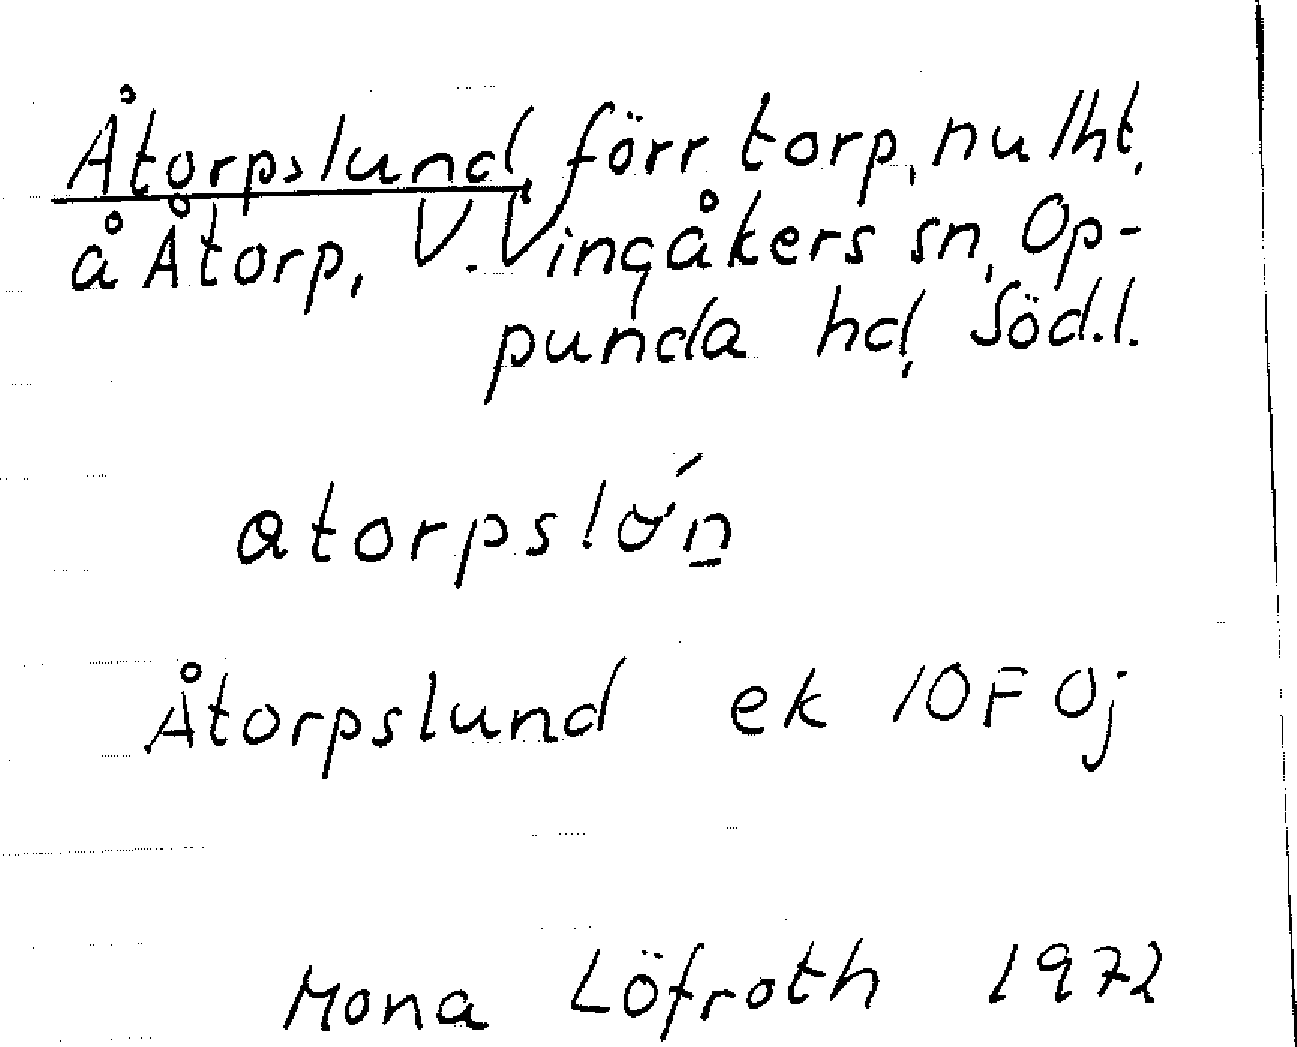 Åtorpslund, förr torp, nu lht,
å Åtorp, V. Vingåkers sn, Op-
punda hd, Söd.l.
Åtorpslund ek 10F 0j
Mona Löfroth 1972